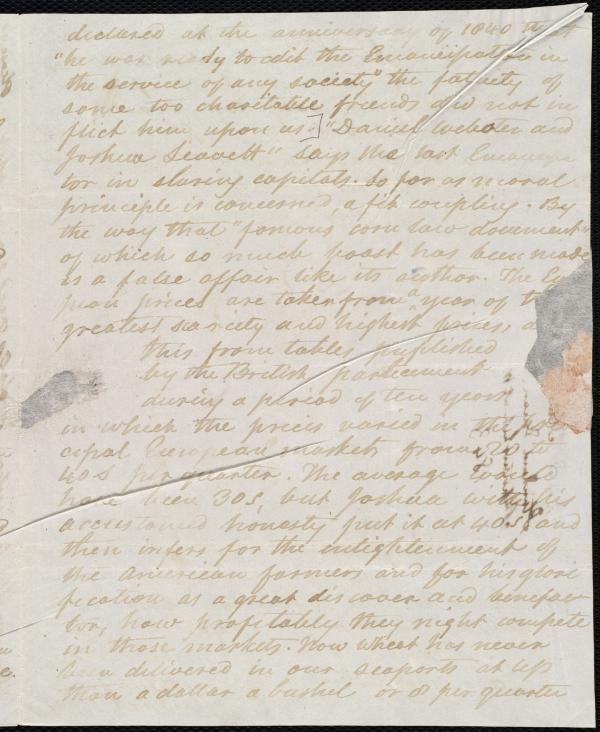 declared at the anniversary of 1840 that
"he was ready to edit the Emancipator in
the service of any society" the fatuity of
some too charitable friends did not in
flict him upon us.] "Daniel Webster and
Joshua Leavett" says the last Emancipa
tor in staring capitals. So far as moral
principle is concerned, a fit coupling. By
the way that "famous corn law document"
of which so much boast has been made
is a false affair like its author. The Eu
pean prices are taken from a year of the
greatest scarcity and highest prices, and
this from tables published
by the British parliament
during a period of ten years
in which the prices varied in the prin
cipal European markets from 20 to
40s per quarter. The average would
have been 30s, but Joshua with his
accustomed honesty put it at 40s, and
then infers for the enlightenment of
the American farmers and for his glori
fication as a great discoverer and benefac
tor, how profitably they might compete
in those markets. Now wheat has never
been delivered in our seaports at less
than a dollar a bushel or 8 per quarter